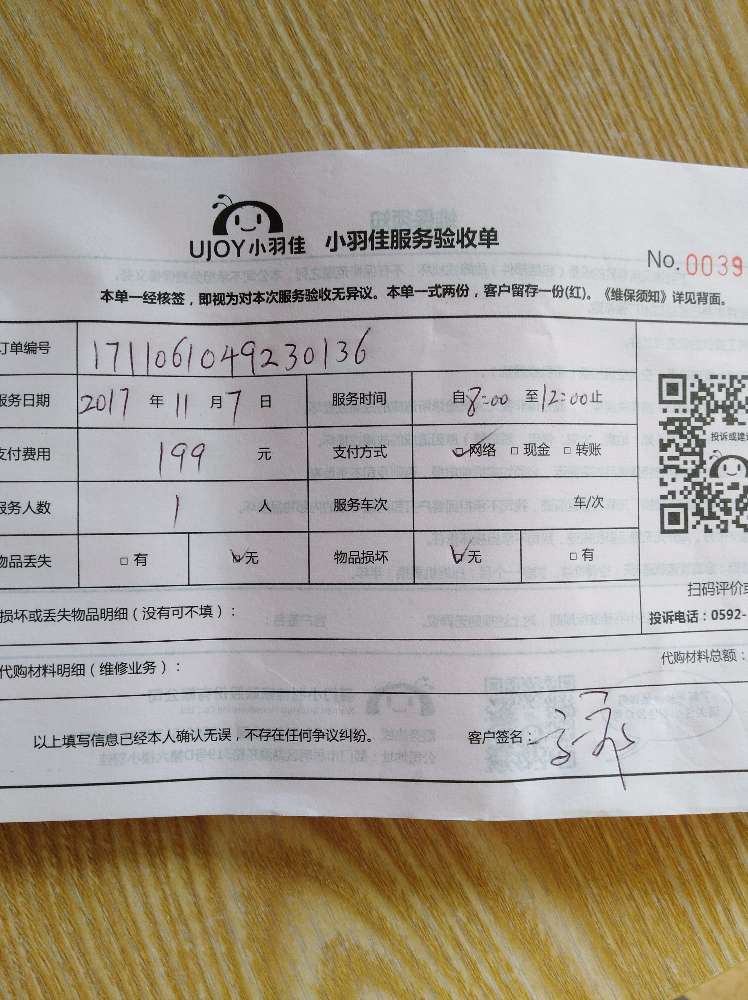 UJOY小羽佳 小羽佳服务验收单
No.0039
本单一经核签，即视为对本次服务验收无异议。本单一式两份，客户留存一份(红)。《维保须知》详见背面。
订单编号 1711061049230136
服务日期 2017 年 11 月 7 日 服务时间 自 8:00 至 12:00 止
支付费用 199 元 支付方式 网络 现金 转账
投诉或建
服务人数 1 人 服务车次 车/次
物品丢失 有 无 物品损坏 无 有
扫码评价或
损坏或丢失物品明细（没有可不填）：
投诉电话：0592-
代购材料明细（维修业务）：
代购材料总额：
以上填写信息已经本人确认无误，不存在任何争议纠纷。 客户签名：